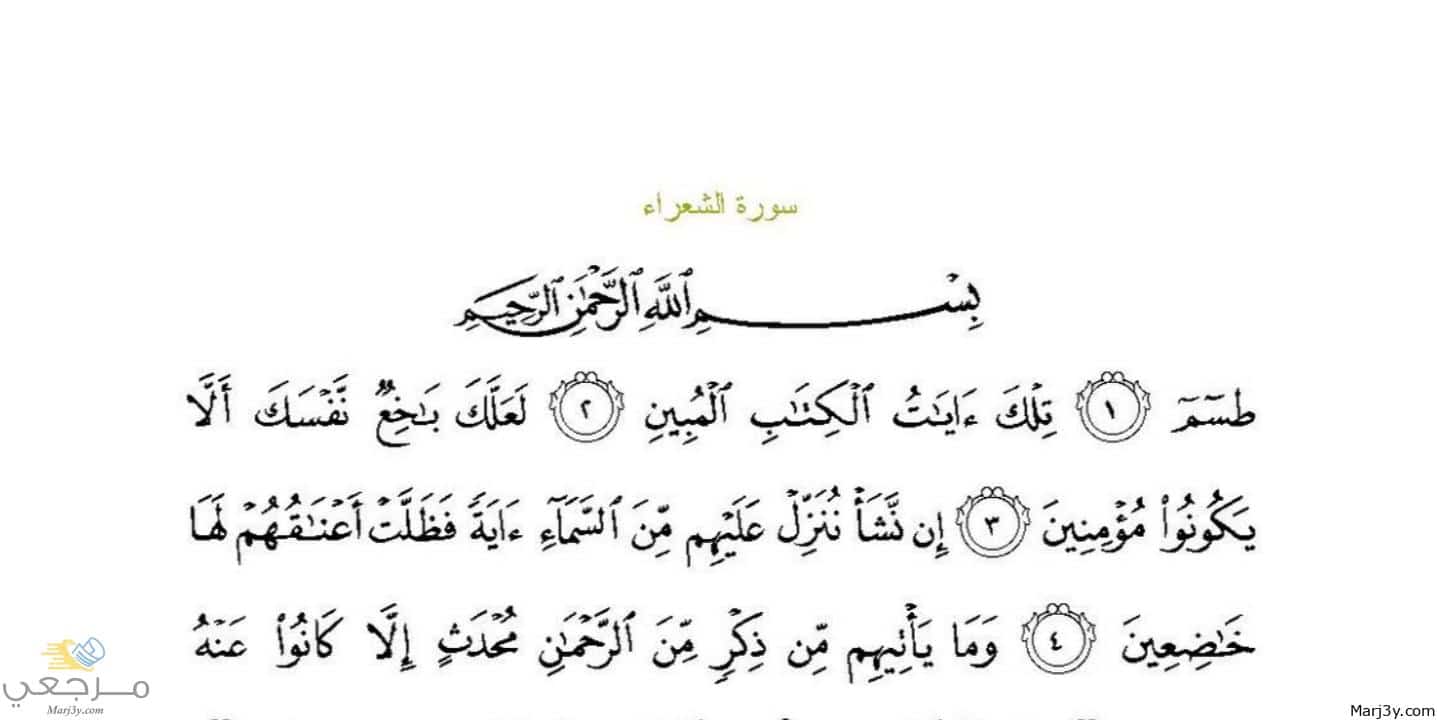 سورة الشعراء
بِسْمِ ٱللَّهِ ٱلرَّحْمَٰنِ ٱلرَّحِيمِ
طسٓمٓ ١ تِلْكَ ءَايَٰتُ ٱلْكِتَٰبِ ٱلْمُبِينِ ٢ لَعَلَّكَ بَٰخِعٌ نَّفْسَكَ أَلَّا
يَكُونُوا۟ مُؤْمِنِينَ ٣ إِن نَّشَأْ نُنَزِّلْ عَلَيْهِم مِّنَ ٱلسَّمَآءِ ءَايَةً فَظَلَّتْ أَعْنَٰقُهُمْ لَهَا
خَٰضِعِينَ ٤ وَمَا يَأْتِيهِم مِّن ذِكْرٍ مِّنَ ٱلرَّحْمَٰنِ مُحْدَثٍ إِلَّا كَانُوا۟ عَنْهُ
مرجعي
Marj3y.com
Marj3y.com